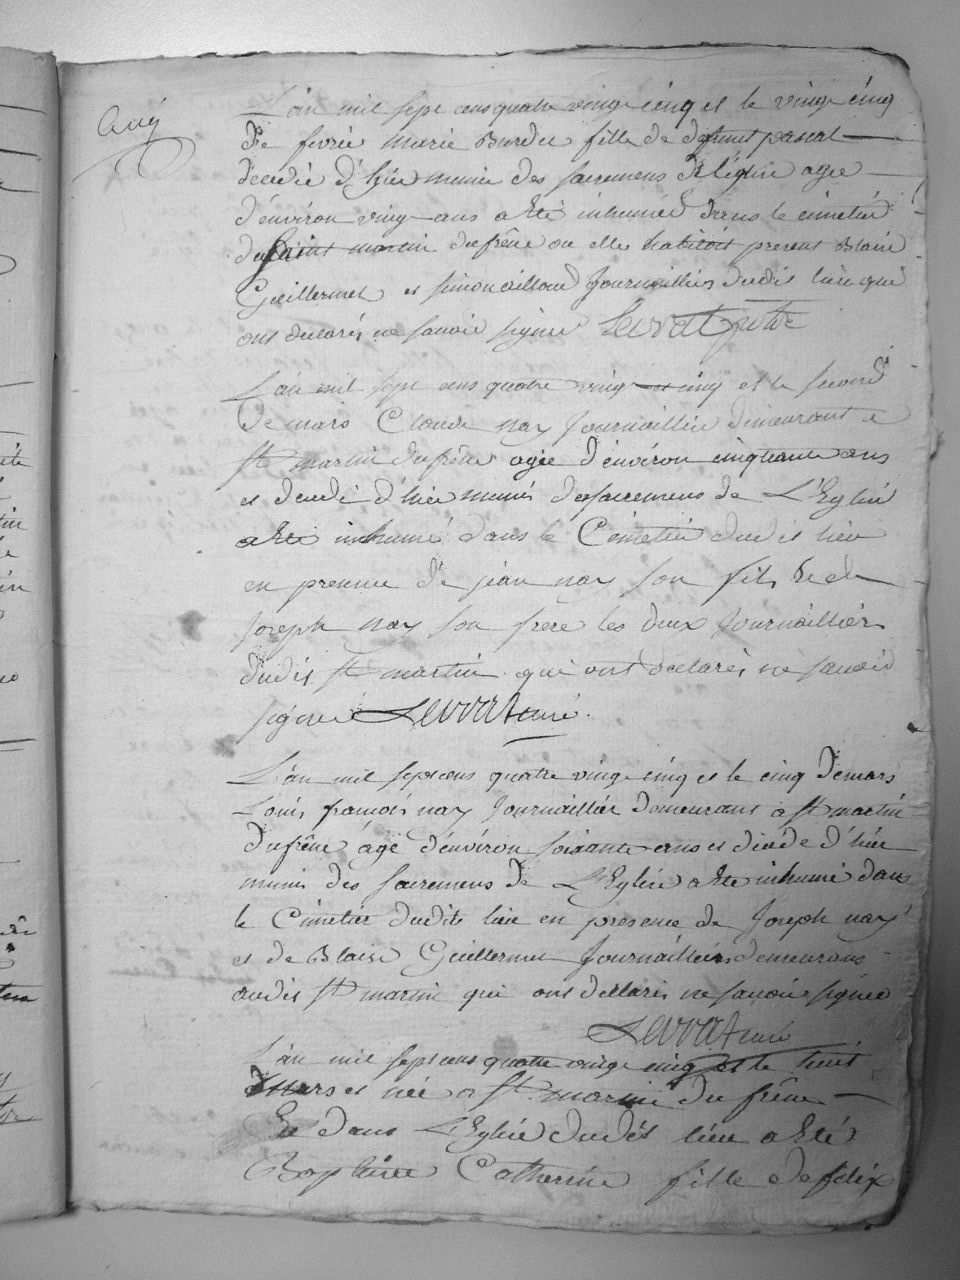 L'an mil sept cens quatre vingt cinq et le vingt cinq
de fevrie marie Burdet fille de defunt pascal
decedée d'hier munie des sacremens de l'église agée
d'environ vingt ans a été inhumée dans le cimetié
du saint martin du frêne ou elle habitoit présent Blaise
Guillermet et simon ailloud journailliers dudit lieu qui
ont declarés ne savoir signer Levrat
L'an mil sept cens quatre vingt et cinq et le second
De mars Claude nay Journaillié demeurant a
St martin du frêne agée d'environ cinquante ans
et decedé d'hier munis des sacremens de L'Eglise
a été inhumé dans le Cémetié dudit lieu
en presence de jean nay son fils, & de
Joseph nay son frere les deux Journailliers
dudit St martin qui ont declarés ne savoir
signer Levrat curé.
L'an mil sept cens quatre vingt cinq et le cinq de mars
Louis francois nay Journaillié demeurant a St martin
du frêne agé d'environ soixante ans et décédé d'hier
munis des sacremens de L'Eglise a été inhumé dans
le Cimetié dudit lieu en presence de Joseph nay
et de Blaise Guillermet Journailliers demeurans
audit St martin qui ont declarés ne savoir signer
Levrat curé
L'an mil sept cens quatre vingt cinq et le huit
de mars est née a St martin du frêne
Et dans L'Eglise dudit lieu a été
Baptisée Catherine fille de felix